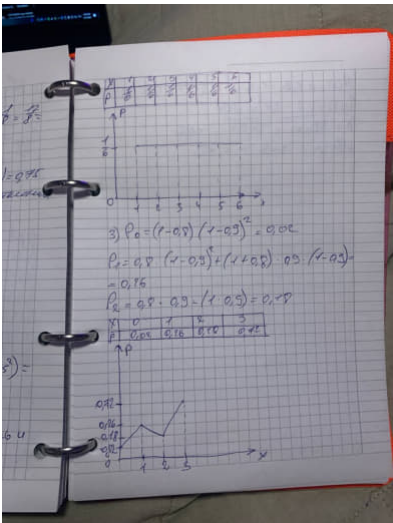 X 1 2 3 4 5 6
P 1/6 1/6 1/6 1/6 1/6 1/6
P
1/6
0 1 2 3 4 5 6
3) P₀ = (1-0,8) (1-0,9)² = 0,02
P₁ = 0,8 · (1-0,9)² + (1+0,8) · 0,9 · (1-0,9) =
= 0,26
P₂ = 0,8 · 0,9 · (1-0,9) = 0,18
X 0 1 2 3
P 0,02 0,26 0,18 0,72
P
0,72
0,26
0,18
0,02
0 1 2 3 X